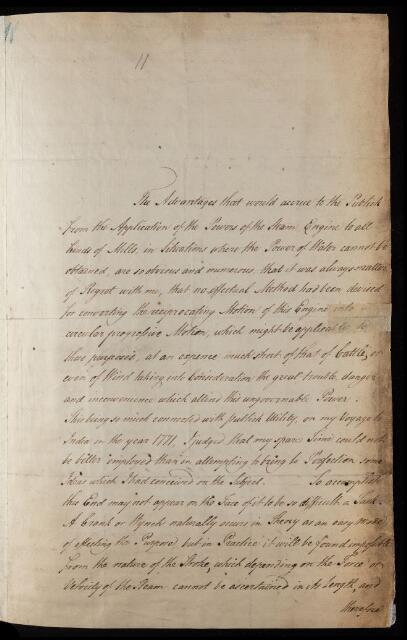 11
The Advantages that would accrue to the Publick
from the Application of the Powers of the Steam Engine to all
kinds of Mills, in Situations where the Power of Water cannot be
obtained, are so obvious and numerous, that it was always matter
of Regret with me, that no effectual Method had been devised
for converting the reciprocating Motion of this Engine into a
circular progressive Motion, which might be applicable to
these purposes, at an expence much short of that of Cattle, or
even of Wind taking into Consideration the great trouble, danger
and inconvenience which attend this ungovernable Power.
This being so much connected with publick Utility, on my Voyage to
India in the year 1771, I judged that my spare Time could not
be better employed than in attempting to bring to Perfection some
Ideas which I had conceived on the Subject. To accomplish
this End may not appear on the Face of it to be so difficult a Task.
A Crank or Wynch naturally occurs in Theory as an easy mode
of effecting the Purpose, but in Practice it will be found impossible
from the nature of the Stroke, which depending on the Force or
Velocity of the Steam cannot be ascertained in its Length, and
therefore